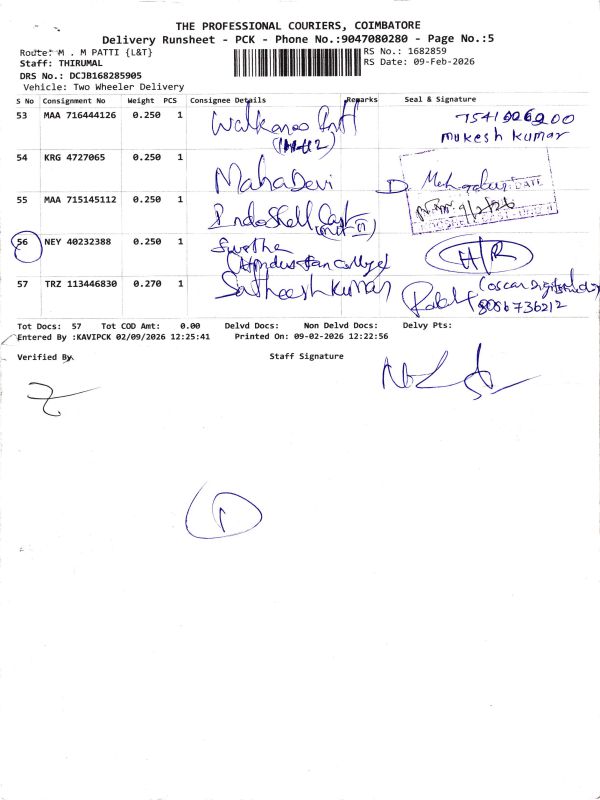 THE PROFESSIONAL COURIERS, COIMBATORE
Delivery Runsheet - PCK - Phone No.:9047080280 - Page No.:5
Route: M . M PATTI {L&T}
RS No.: 1682859
Staff: THIRUMAL
RS Date: 09-Feb-2026
DRS No.: DCJB168285905
Vehicle: Two Wheeler Delivery
S No Consignment No Weight PCS Consignee Details Remarks Seal & Signature
53 MAA 716444126 0.250 1 Walkaroo 7541006200
mukesh kumar
54 KRG 4727065 0.250 1 MahaDevi D.
DATE
55 MAA 715145112 0.250 1 IndoShell Cast 9/2/26
(unit II)
56 NEY 40232388 0.250 1 Swetha H/R
(Hindustan college)
57 TRZ 113446830 0.270 1 Satheesh Kumar
8086736212
Tot Docs: 57 Tot COD Amt: 0.00 Delvd Docs: Non Delvd Docs: Delvy Pts:
Entered By :KAVIPCK 02/09/2026 12:25:41 Printed On: 09-02-2026 12:22:56
Verified By Staff Signature